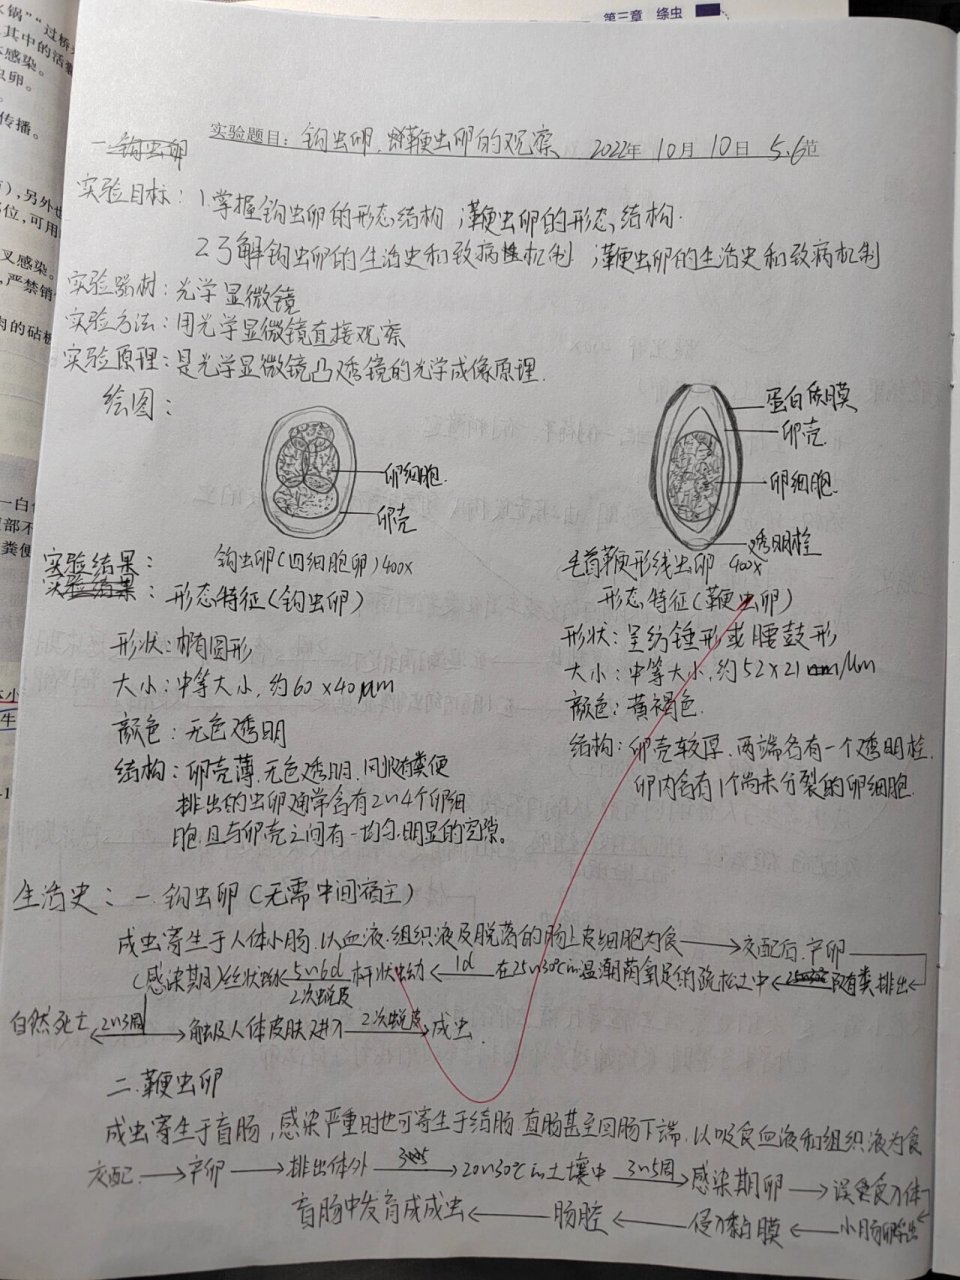 第三章 绦虫
水锅""过桥
其中的活
感染。
卵。
传播。
一钩虫卵
实验题目：钩虫卵、鞭虫卵的观察 2022年10月10日 5.6节
实验目标：1.掌握钩虫卵的形态结构；鞭虫卵的形态结构.
2.了解钩虫卵的生活史和致病机制；鞭虫卵的生活史和致病机制
），另外也
位，可用
叉感染。
严禁销
肉的砧板
实验器材：光学显微镜
实验方法：用光学显微镜直接观察
实验原理：是光学显微镜凸透镜的光学成像原理.
绘图：
卵细胞.
卵壳
蛋白质膜
卵壳.
卵细胞.
透明栓
钩虫卵(四细胞卵)400x
毛首鞭形线虫卵 400x
实验结果：
实验结果：形态特征(钩虫卵)
形状：椭圆形
大小：中等大小，约60×40μm
颜色：无色透明
结构：卵壳薄.无色透明.粪便
排出的虫卵通常含有2~4个卵细
胞且与卵壳之间有一均匀.明显的空隙。
形态特征(鞭虫卵)
形状：呈纺锤形或腰鼓形
大小：中等大小，约52×21μm
颜色：黄褐色.
结构：卵壳较厚.两端各有一个透明栓.
卵内含有1个尚未分裂的卵细胞.
生活史：一.钩虫卵(无需中间宿主)
成虫寄生于人体小肠.以血液.组织液及脱落的肠上皮细胞为食→交配后.产卵
(感染期)丝状蚴←5~6d 2次蜕皮 杆状蚴←1d 在25~30℃温潮荫氧足的疏松土中←随粪排出
自然死亡←2~3周→触及人体皮肤进入 2次蜕皮→成虫.
二.鞭虫卵
成虫寄生于盲肠，感染严重时也可寄生于结肠.直肠甚至回肠下端，以吸食血液和组织液为食
交配→产卵→排出体外→20~30℃土壤中 3~5周→感染期卵→误食人体
盲肠中发育成成虫←肠腔←侵入黏膜←小肠卵孵出